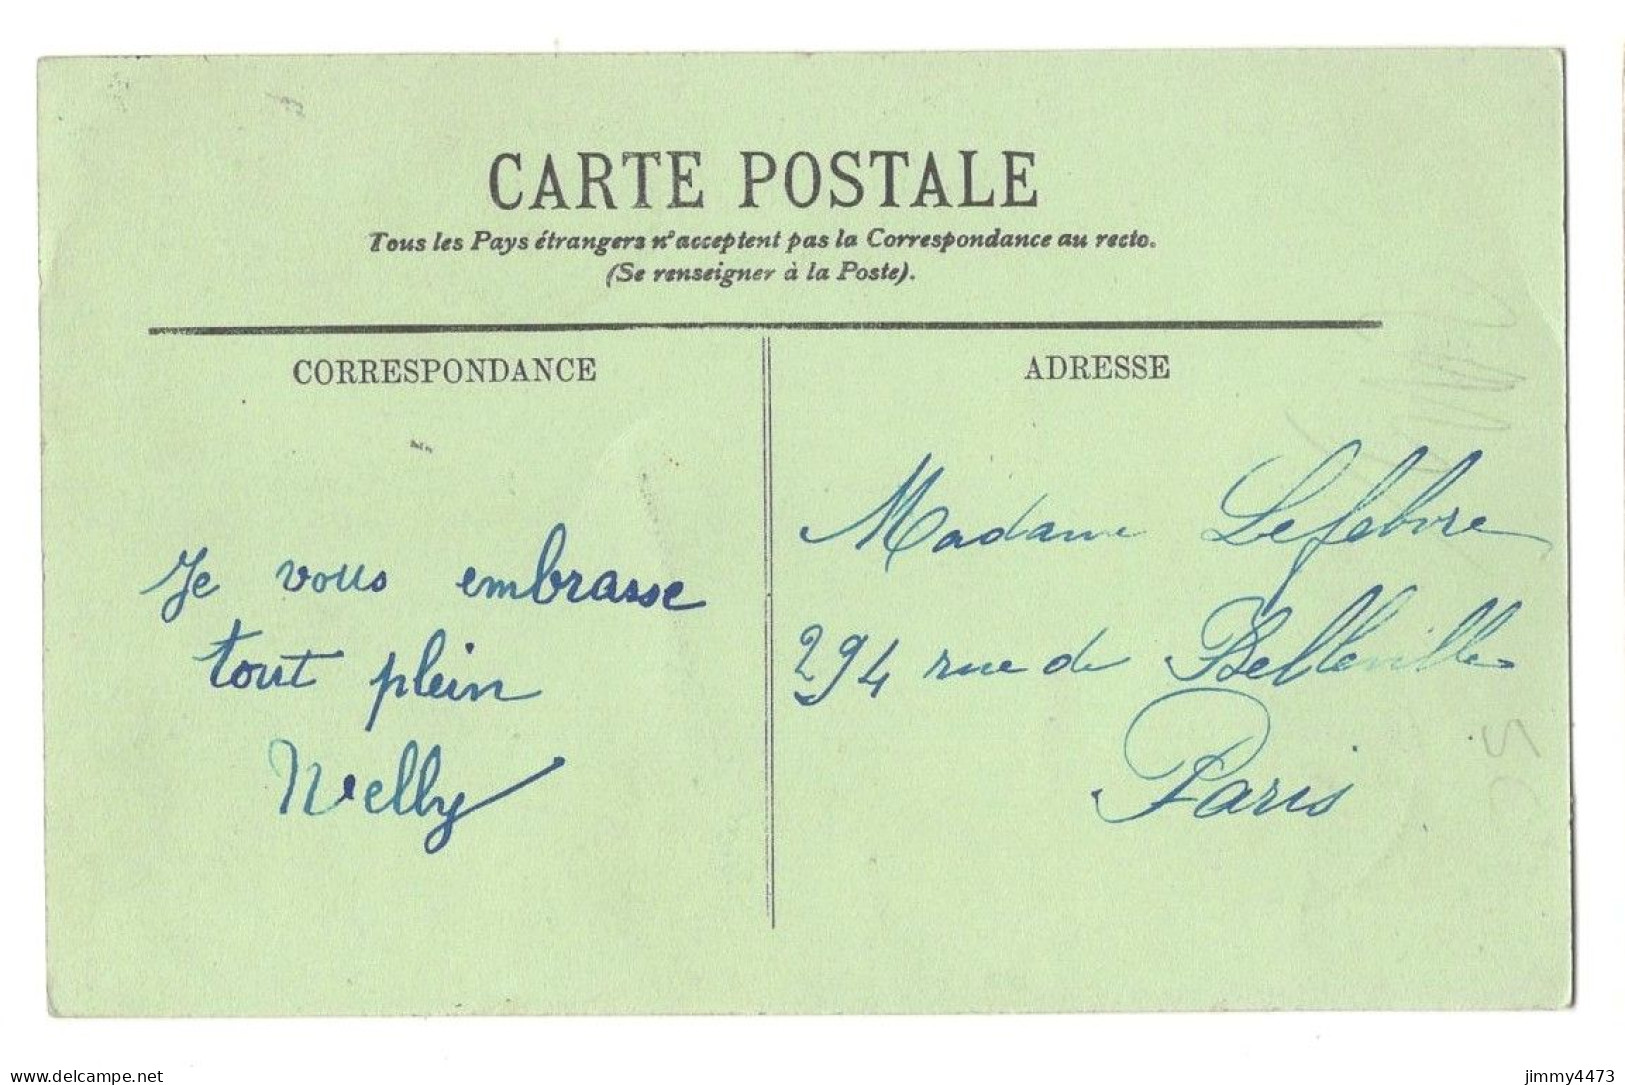 CARTE POSTALE
Tous les Pays étrangers n'acceptent pas la Correspondance au recto.
(Se renseigner à la Poste).
CORRESPONDANCE
ADRESSE
Je vous embrasse
tout plein
Nelly
Madame Lefebvre
294 rue de Belleville
Paris
www.delcampe.net
jimmy4473